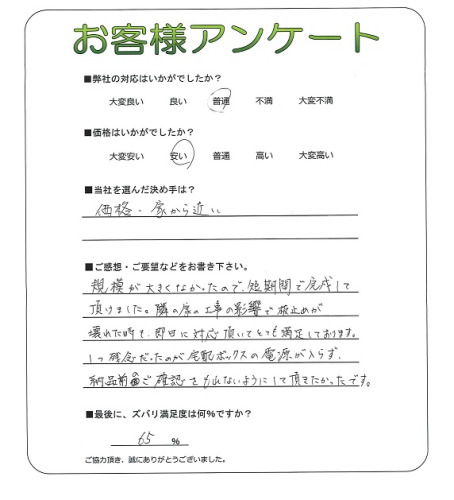 お客様アンケート
■弊社の対応はいかがでしたか?
大変良い 良い 普通 不満 大変不満
■価格はいかがでしたか?
大変安い 安い 普通 高い 大変高い
■当社を選んだ決め手は?
価格・家から近い
■ご感想・ご要望などをお書き下さい。
規模が大きくなかったので、短期間で完成して
頂けました。隣の家の工事の影響で波止めが
壊れた時も、即日に対応頂いてとても満足しております。
1つ残念だったのが宅配ボックスの電源が入らず、
納品前のご確認をもれないようにして頂きたかったです。
■最後に、ズバリ満足度は何%ですか?
65 %
ご協力頂き、誠にありがとうございました。